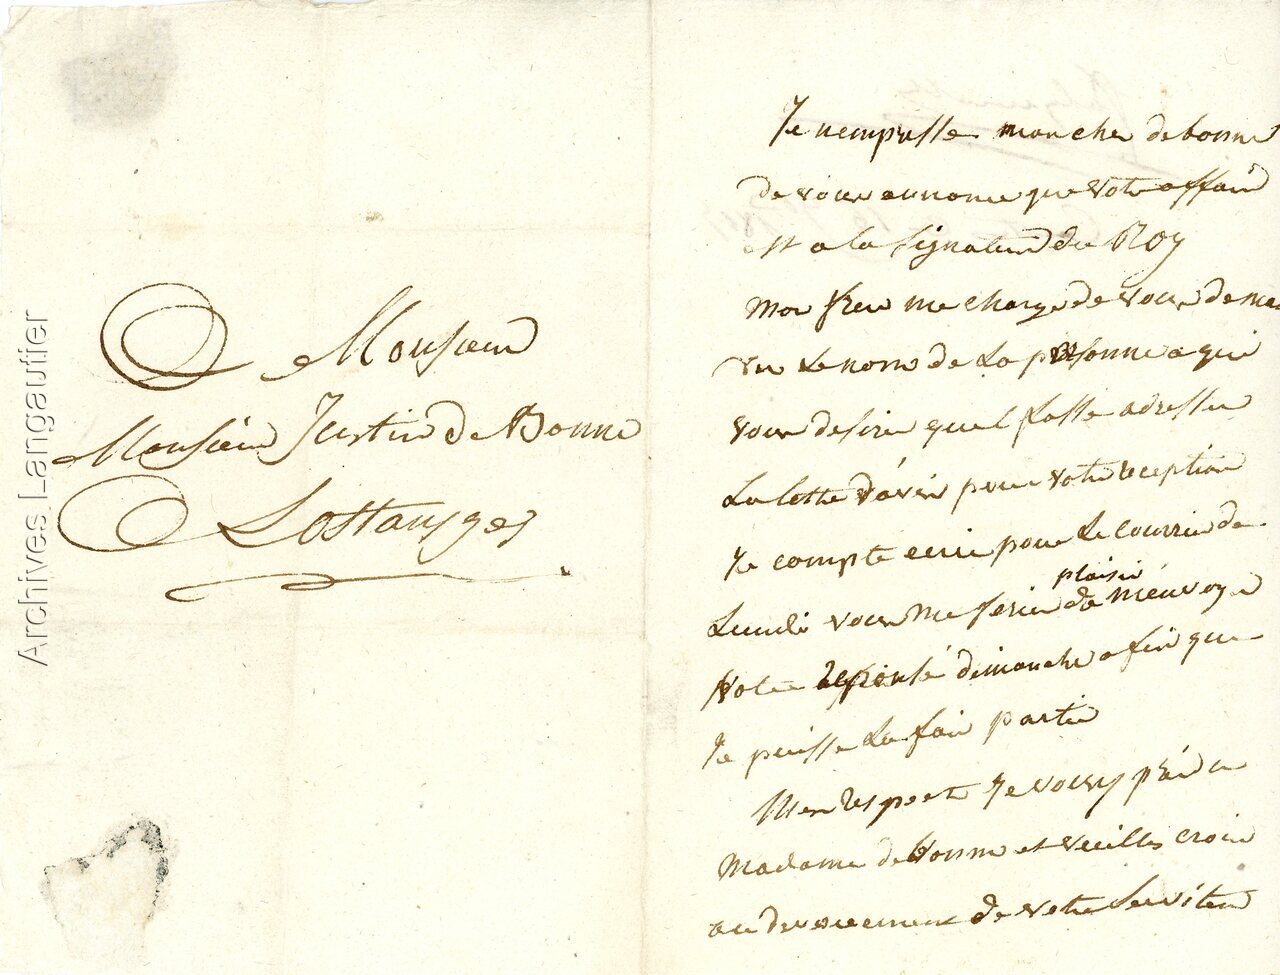 Archives Langautier
Monsieur
Monsieur Justin de Bonne
Lostanges
Je mempresse mon cher debonne
de vous annonce que votre affair
est a la signature du Roy
mon frere me charge de vous deman
der le nom de la personne a qui
vous desire quel fasse adresser
La lettre davis pour votre reception
Je compte ecrire pour le courrier de
Lundi vous me feriez plaisir de menvoyer
votre reponse dimanche afin que
Je puisse la fair partir
Mes respect Je vous prie a
Madame debonne et veuilles croire
au devouement de votre serviteur